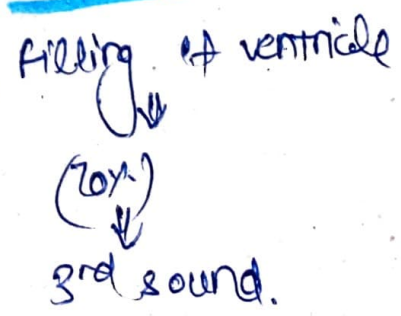 Filling of ventricle
(70%)
3rd sound.